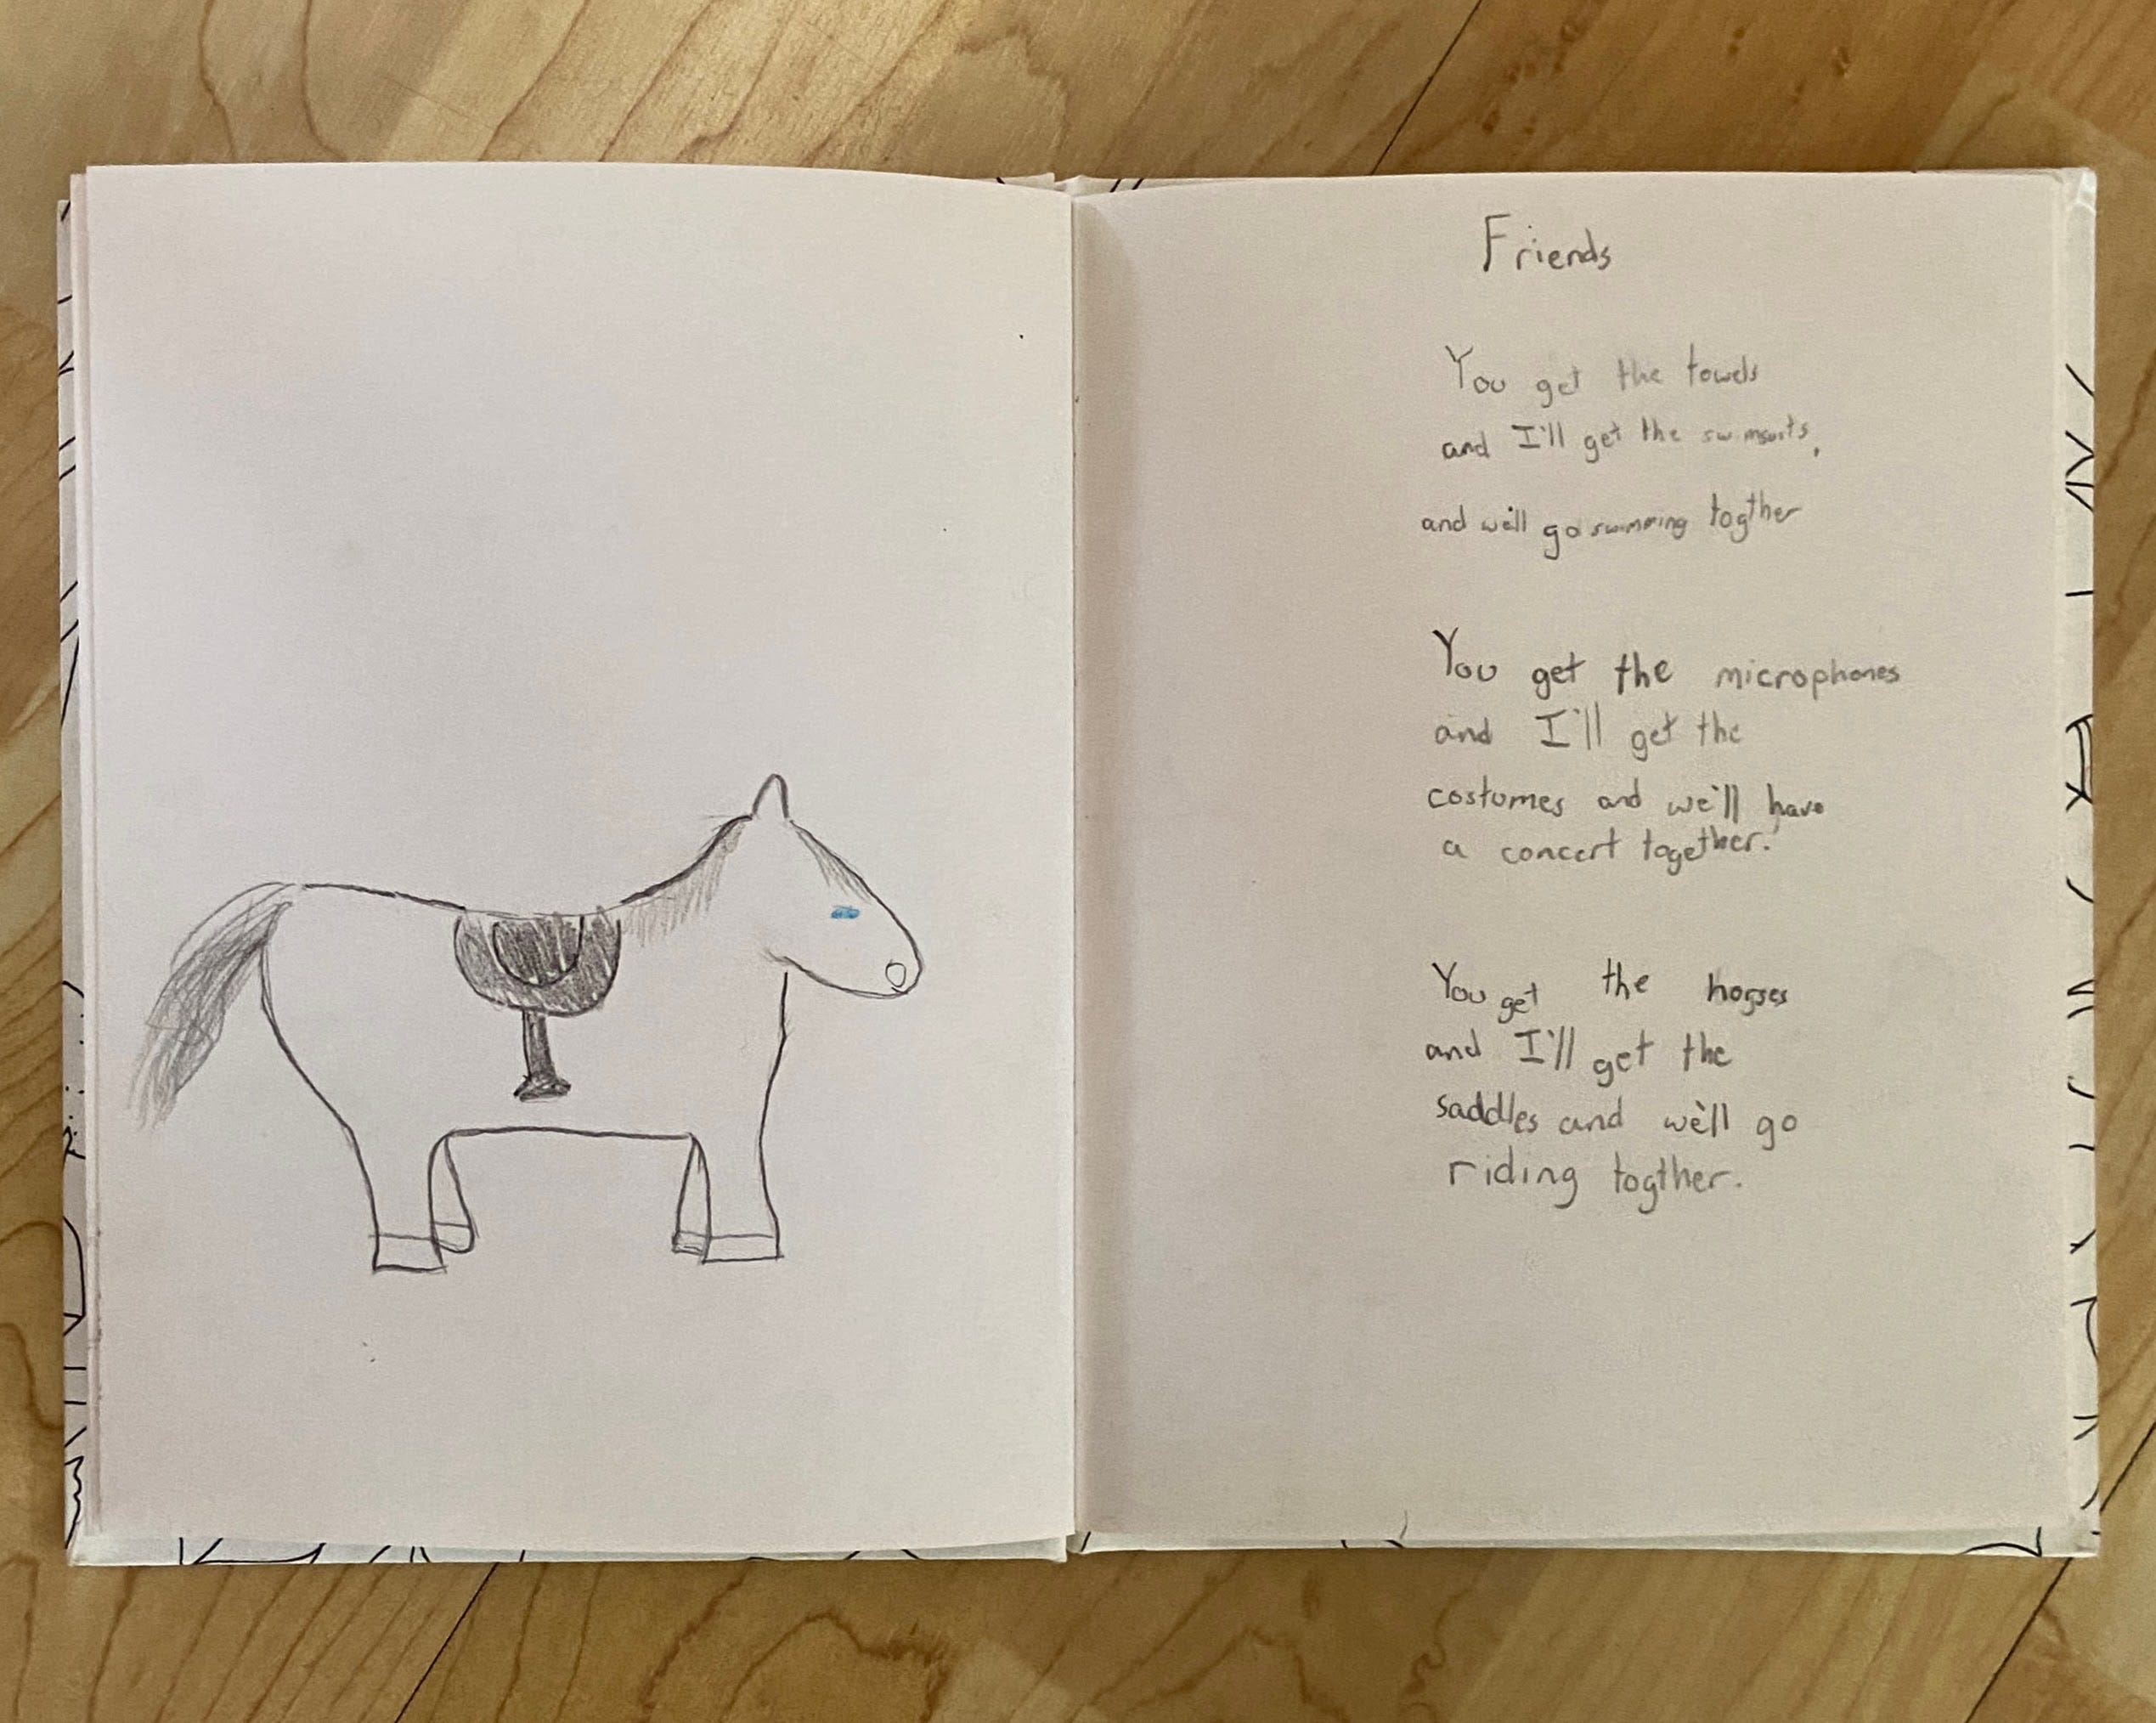 Friends
You get the towels
and I'll get the swimsuits,
and we'll go swimming togther
You get the microphones
and I'll get the
costumes and we'll have
a concert together.
You get the horses
and I'll get the
saddles and we'll go
riding togther.